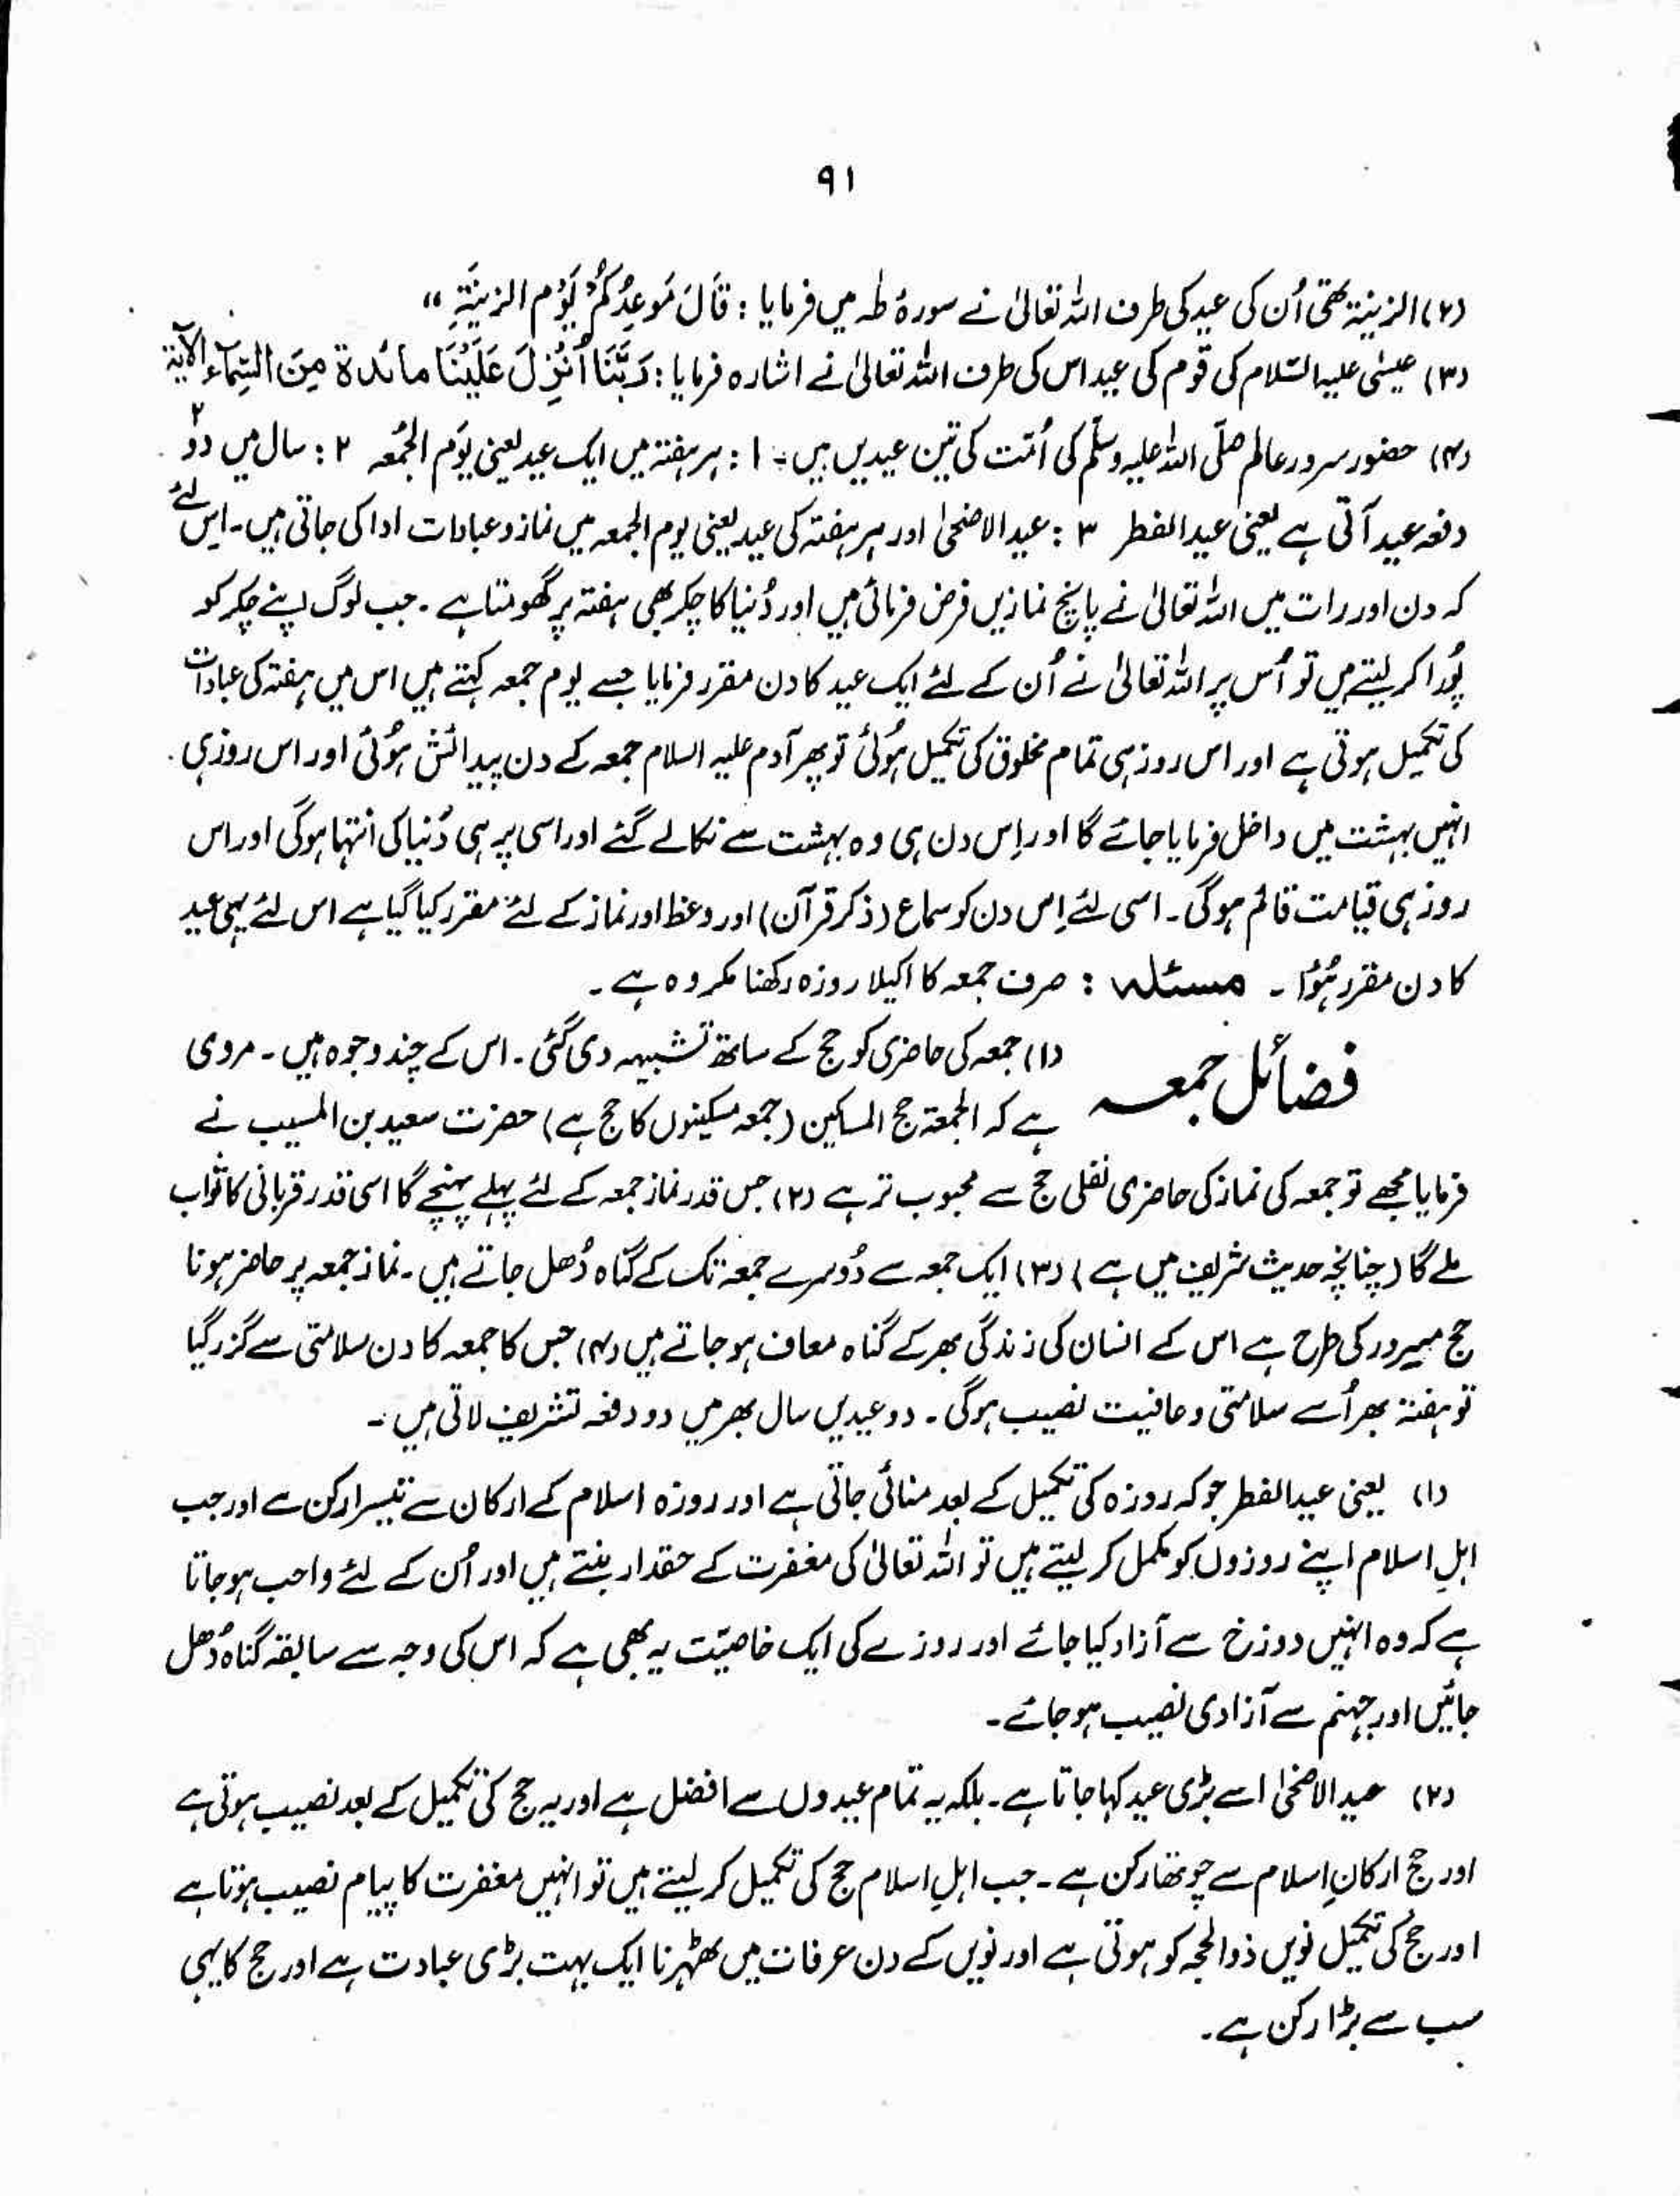 ۹۱
(۲) الزینۃ تھی اُن کی عید کی طرف اللہ تعالیٰ نے سورۂ طہٰ میں فرمایا : قَالَ مَوعِدُکُمْ یَوْم الزینَۃِ ”
(۳) عیسٰی علیہ السّلام کی قوم کی عید اس کی طرف اللہ تعالیٰ نے اشارہ فرمایا : رَبَّنَا أَنْزِلَ عَلَیْنَا مائدۃ مِنَ السَّمَآءِ الآیۃ
(۴) حضور سرور عالم صلّی اللہ علیہ وسلّم کی اُمّت کی تین عیدیں ہیں ۔ ۱ : ہر ہفتہ میں ایک عید یعنی یَوم الجُمُعہ ۲ : سال میں دو ۲
دفعہ عید آتی ہے یعنی عید الفطر ۳ : عید الاضحیٰ اور ہر ہفتہ کی عید یعنی یوم الجمعہ میں نماز و عبادات ادا کی جاتی ہیں ۔ اس لئے
کہ دن اور رات میں اللہ تعالیٰ نے پانچ نمازیں فرض فرمائی ہیں اور دُنیا کا چکر بھی ہفتہ پر گھومتا ہے ۔ جب لوگ اپنے چکر کو
پُورا کر لیتے ہیں تو اُس پر اللہ تعالیٰ نے اُن کے لئے ایک عید کا دن مقرر فرمایا جسے یوم جمعہ کہتے ہیں اس میں ہفتہ کی عبادات
کی تکمیل ہوتی ہے اور اس روز ہی تمام مخلوق کی تکمیل ہُوئی تو پھر آدم علیہ السلام جمعہ کے دن پیدائش ہُوئی اور اس روز ہی
انہیں بہشت میں داخل فرمایا جائے گا اور اِس دن ہی وہ بہشت سے نکالے گئے اور اسی پر ہی دُنیا کی انتہا ہوگی اور اس
روز ہی قیامت قائم ہوگی ۔ اسی لئے اِس دن کو سماع (ذکر قرآن) اور وعظ اور نماز کے لئے مقرر کیا گیا ہے اس لئے یہی عید
کا دن مقرر ہُوا ۔ مسئلہ : صرف جمعہ کا اکیلا روزہ رکھنا مکروہ ہے ۔
فضائل جمعہ
(۱) جمعہ کی حاضری کو حج کے ساتھ تشبیہہ دی گئی ۔ اس کے چند وجوہ ہیں ۔ مروی
ہے کہ الجمعۃ حج المساکین (جمعہ مسکینوں کا حج ہے) حضرت سعید بن المسیب نے
فرمایا مجھے تو جمعہ کی نماز کی حاضری نفلی حج سے محبوب تر ہے (۲) جس قدر نماز جمعہ کے لئے پہلے پہنچے گا اسی قدر قربانی کا ثواب
ملے گا (چنانچہ حدیث شریف میں ہے) (۳) ایک جمعہ سے دُوسرے جمعہ تک کے گناہ دُھل جاتے ہیں ۔ نماز جمعہ پر حاضر ہونا
حج مبرور کی طرح ہے اس کے انسان کی زندگی بھر کے گناہ معاف ہو جاتے ہیں (۴) جس کا جمعہ کا دن سلامتی سے گزر گیا
تو ہفتہ بھر اُسے سلامتی و عافیت نصیب ہوگی ۔ دو عیدیں سال بھر میں دو دفعہ تشریف لاتی ہیں ۔
(۱) یعنی عید الفطر جو کہ روزہ کی تکمیل کے بعد منائی جاتی ہے اور روزہ اسلام کے ارکان سے تیسرا رکن سے اور جب
اہلِ اسلام اپنے روزوں کو مکمل کر لیتے ہیں تو اللہ تعالیٰ کی مغفرت کے حقدار بنتے ہیں اور اُن کے لئے واجب ہو جاتا
ہے کہ وہ انہیں دوزخ سے آزاد کیا جائے اور روزے کی ایک خاصیّت یہ بھی ہے کہ اس کی وجہ سے سابقہ گناہ دُھل
جائیں اور جہنم سے آزادی نصیب ہو جائے ۔
(۲) عید الاضحیٰ اسے بڑی عید کہا جاتا ہے ۔ بلکہ یہ تمام عیدوں سے افضل ہے اور یہ حج کی تکمیل کے بعد نصیب ہوتی ہے
اور حج ارکانِ اسلام سے چوتھا رکن ہے ۔ جب اہلِ اسلام حج کی تکمیل کر لیتے ہیں تو انہیں مغفرت کا پیام نصیب ہوتا ہے
اور حج کی تکمیل نویں ذوالحجہ کو ہوتی ہے اور نویں کے دن عرفات میں ٹھہرنا ایک بہت بڑی عبادت ہے اور حج کا یہی
سب سے بڑا رکن ہے ۔